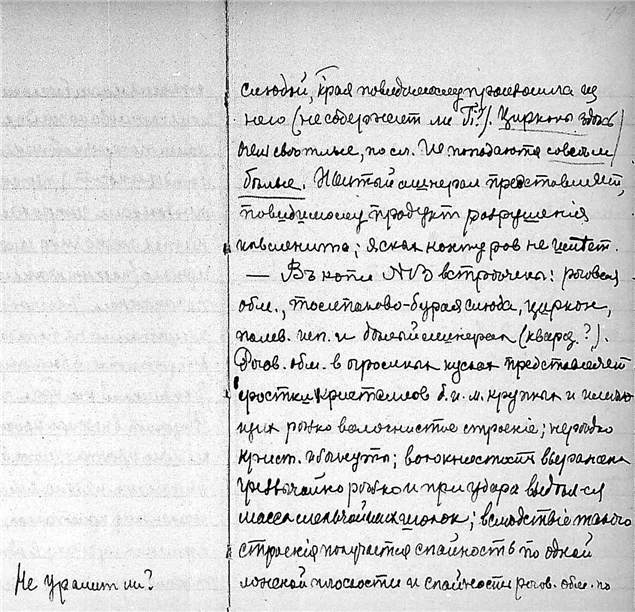 слюдой, края повидимому произошла из
него (не содержит ли Ti?). Цирконы здесь
очен светлые, по сл. Не попадаются совсем
белые. Желтый минерал представляет,
повидимому продукт разрушения
нефелинита; ясных контуров не имѣет.
— Въ копи №3 встрѣчены: роговая
обм., томпаково-бурая слюда, циркон,
полев. шп. и белый минерал (кварц?).
Рогов. обм. в огромных кусках представляет
сростки кристаллов б. и. м. крупных и имею
щих резко волокнистое строение; нередко
крист. изогнуты; волокнистость выражена
чрезвычайно резко и при ударе
масса мельчайших иголок; вследствие такого
строения получается спайность по одной
ложной плоскости и спайности рогов. обм. по
Не уралит ли?